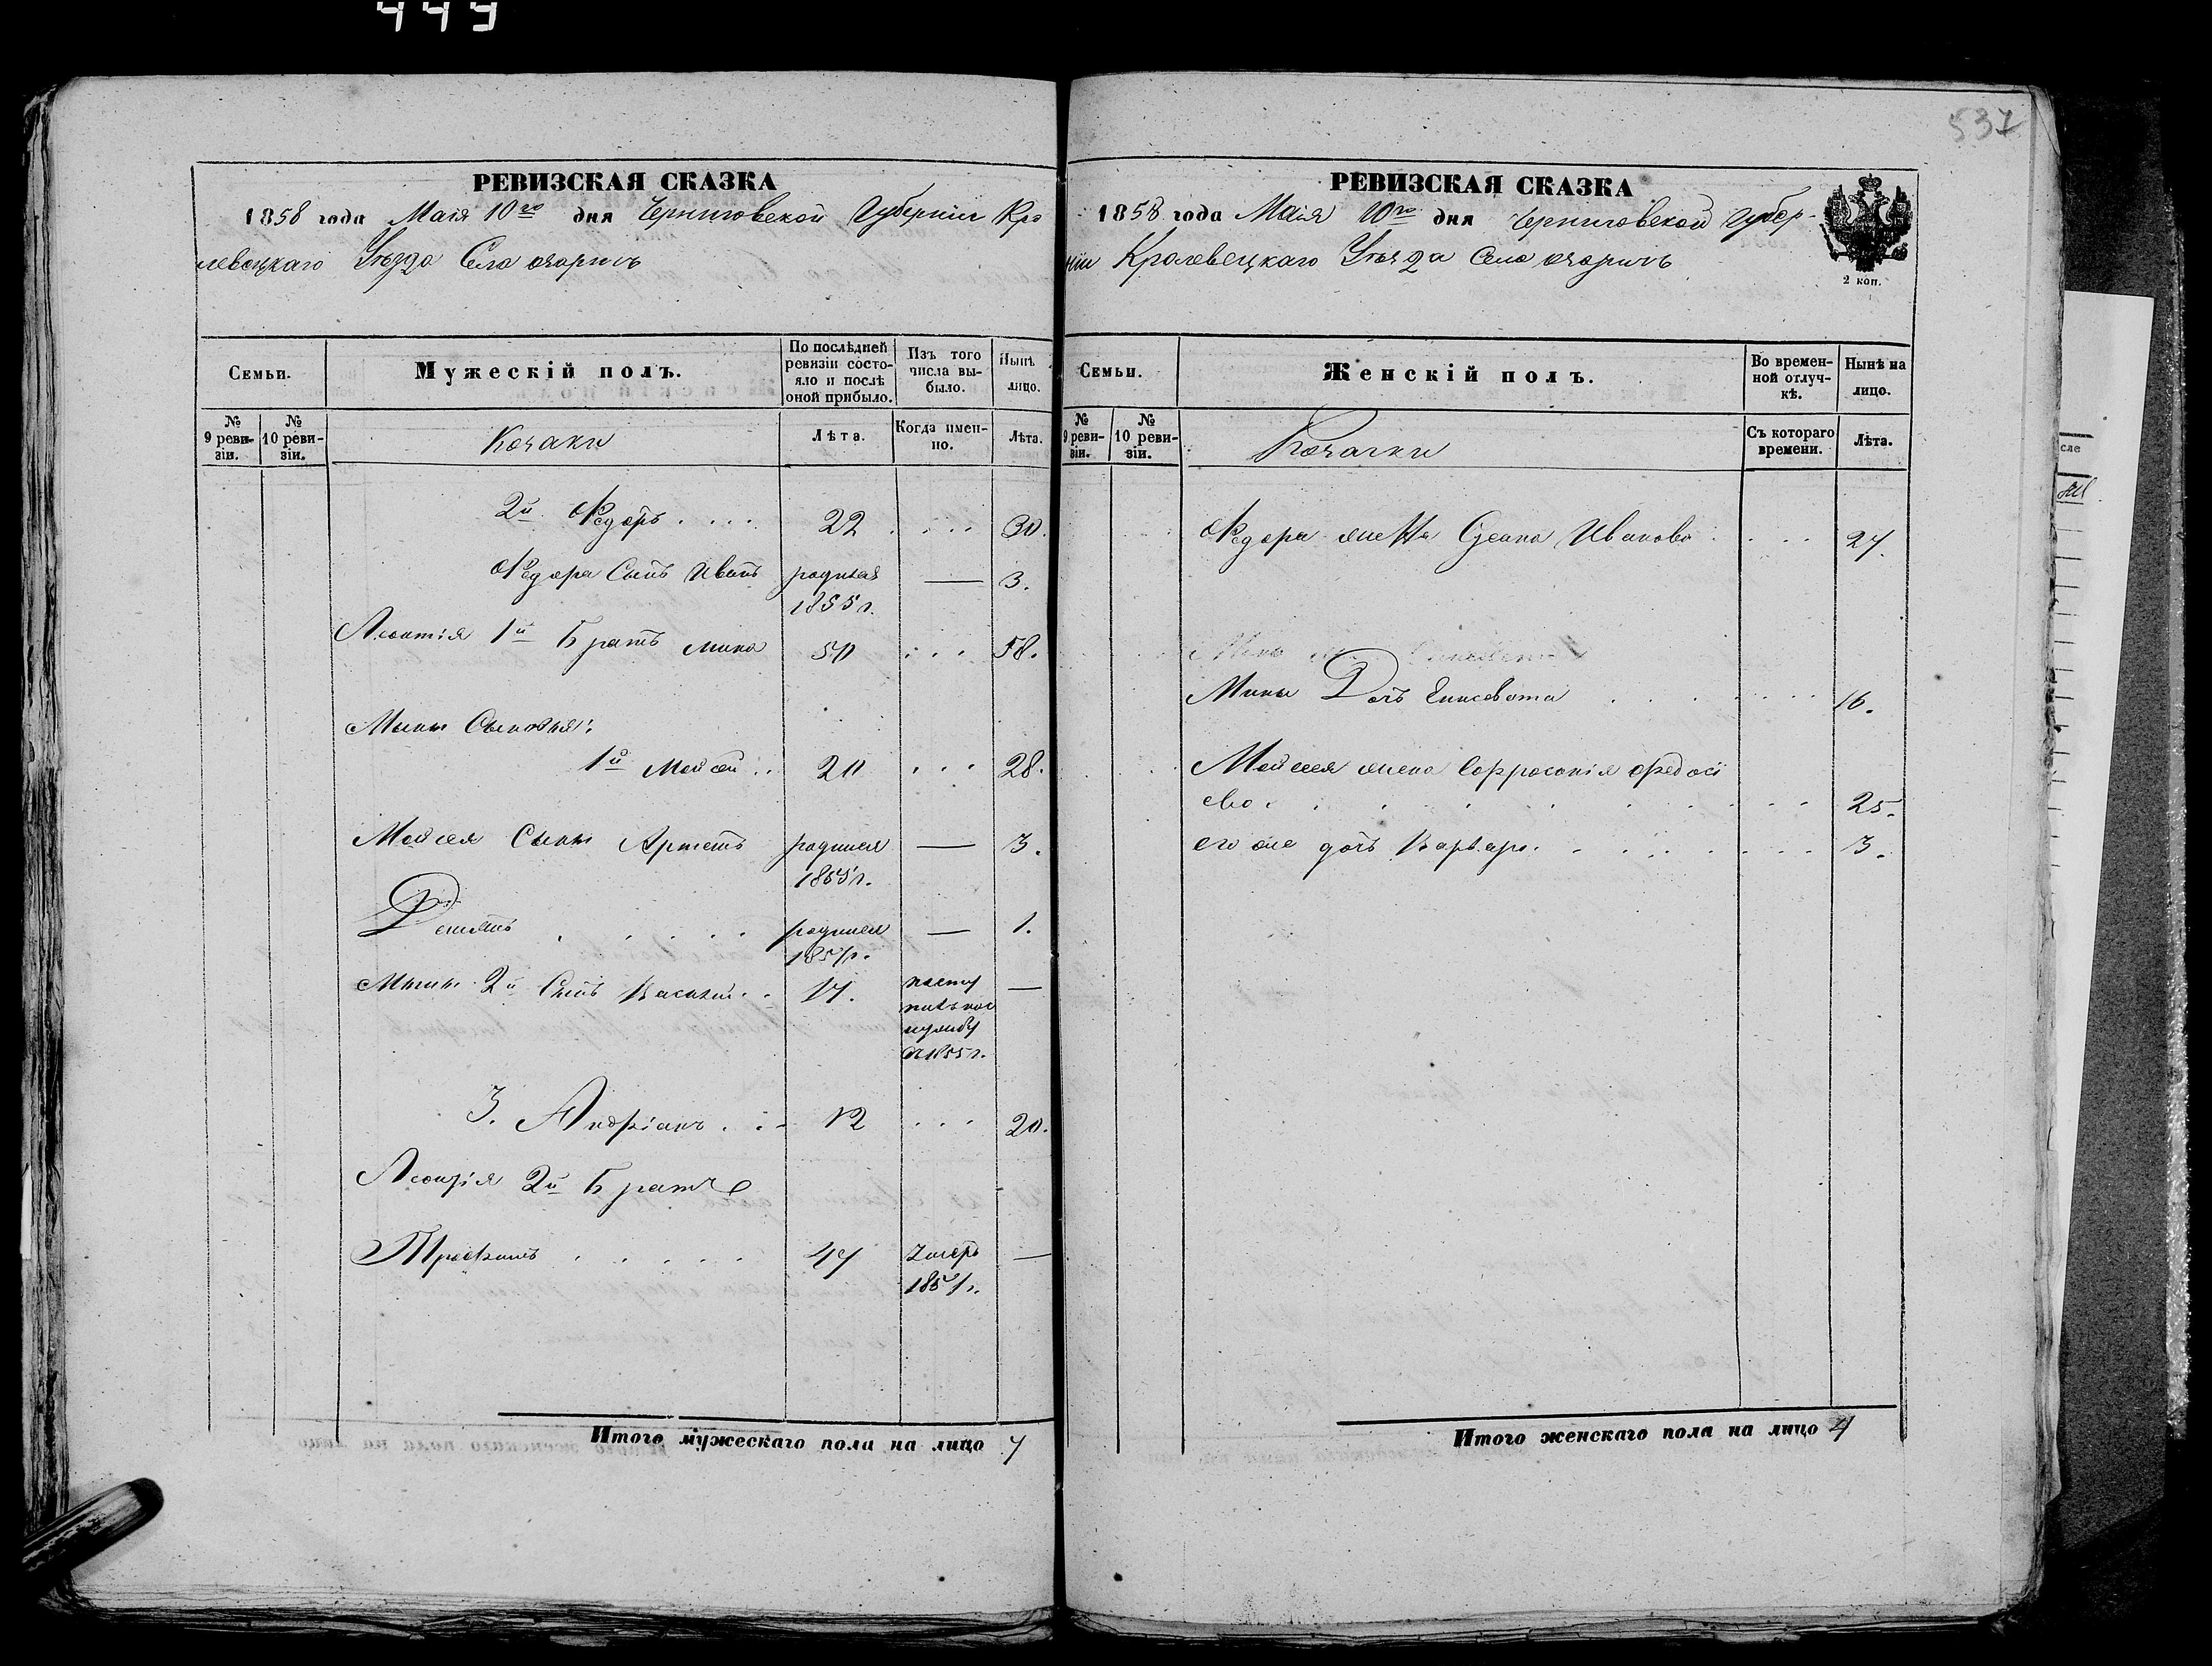 449
537
РЕВИЗСКАЯ СКАЗКА
1858 года Маія 10го дня Черниговской Губерніи Кро
левецкаго Уѣзда Села
Семьи.
Мужескій полъ.
По послѣдней ревизіи состояло и послѣ оной прибыло.
Изъ того числа выбыло.
Нынѣ лицо.
№ 9 ревизіи.
№ 10 ревизіи.
Козаки
Лѣта.
Когда именно.
Лѣта.
2й Федоръ . . . . 22 . . . 30.
Федора Сынъ Иванъ родился — 3.
1855 г.
Леонтія 1й Братъ Мина 50 . . . 58.
Мины Сыновья:
1й Мойсей . . 20 . . . 28.
Мойсея Сыны Артемъ родился — 3.
1855 г.
Демянъ . . . . . родился — 1.
1857 г.
Мины 2й Сынъ Василий . . 17. посту —
пилъ на
службу
1855 г.
3. Андріанъ . . . 12 . . . 20.
Леонтія 2й Братъ
Трофимъ . . . . . 47 Умеръ —
1857 г.
Итого мужескаго пола на лицо 7
РЕВИЗСКАЯ СКАЗКА
1858 года Маія 10го дня Черниговской Губер-
ніи Кролевецкаго Уѣзда Села
2 коп.
Семьи.
Женскій полъ.
Во временной отлучкѣ.
Нынѣ на лицо.
№ 9 ревизіи.
№ 10 ревизіи.
Козачки
Съ котораго времени.
Лѣта.
Федора жена Ивановна . . . 27.
Мины Дочь Елисавета . . . . 16.
Мойсея жена Ефросинія Федосі
ева . . . . . . . . 25.
его же дочь Варвара . . . . . . 3.
Итого женскаго пола на лицо 4